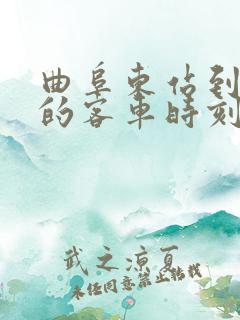 曲阜東佔到
的客車時刻
武之涼夏
未经同意禁止转载